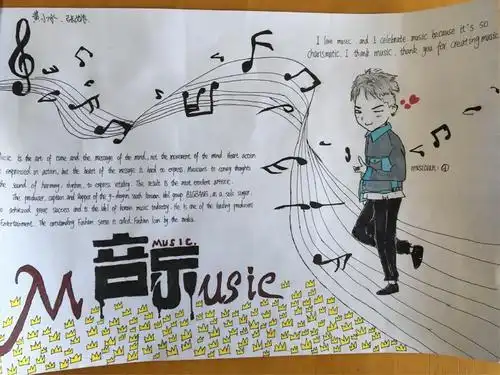 黄小
I love music and I celebrate music because it's so
charismatic. I thank music, thank you for creating music
MUSICIAN: ①
Music is the art of time and the message of the mind, not the movement of the mind. Heart action
is expressed in action, but the heart of the message is hard to express. Musicians to convey thoughts
the sound of harmony, rhythm, to express vitality. The result is the most excellent artistic.
The producer, captain and Rapper of the 4-person South Korean idol group BIGBANG, as a solo singer,
achieved great success and is the idol of Korean music industry. He is one of the leading producers
Entertainment. The outstanding Fashion sense is called Fashion Icon by the media.
MUSIC.
M 音乐 usic